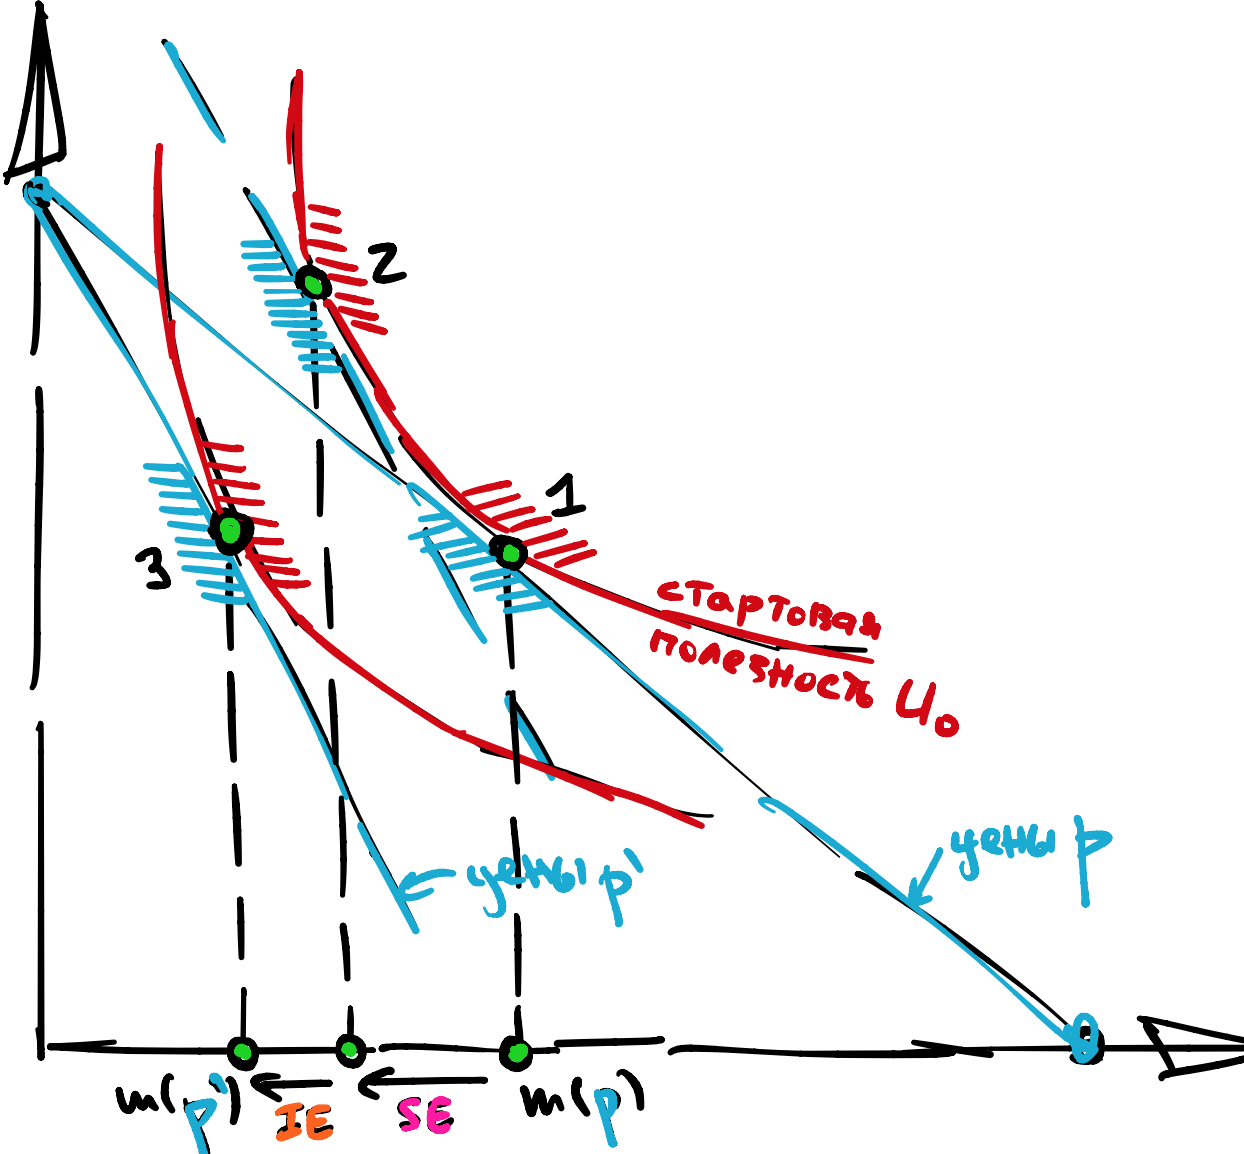 2
1
3
стартовая
полезность u₀
цены p
цены p'
m(p') IE SE m(p)